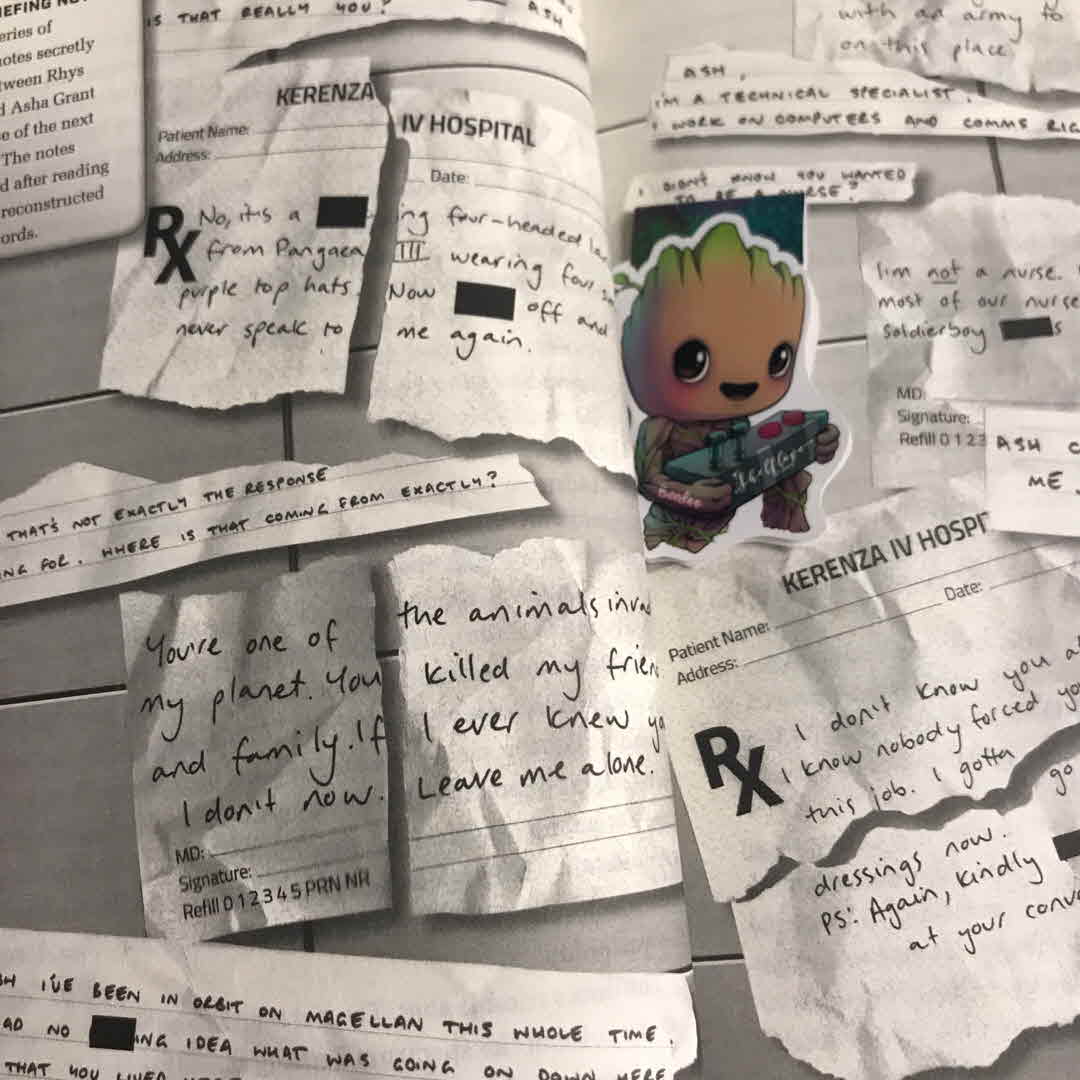 EFING NO
eries of
otes secretly
tween Rhys
d Asha Grant
e of the next
The notes
d after reading
reconstructed
ords.
IS THAT REALLY YOU?
ASH
KERENZA IV HOSPITAL
Patient Name:
Address:
Date:
RX
No, it's a ing four-headed
from Pangaea III wearing four
purple top hats. Now off and
never speak to me again.
THAT'S NOT EXACTLY THE RESPONSE
NG FOR. WHERE IS THAT COMING FROM EXACTLY?
You're one of the animals inva
my planet. You killed my frien
and family. If I ever knew yo
I don't now. Leave me alone.
MD:
Signature:
Refill 0 1 2 3 4 5 PRN NR
SH I'VE BEEN IN ORBIT ON MAGELLAN THIS WHOLE TIME.
AD NO ING IDEA WHAT WAS GOING ON DOWN HERE
THAT YOU LIVED
with an army to
on this place
ASH,
I'M A TECHNICAL SPECIALIST.
I WORK ON COMPUTERS AND COMMS RIG
I DIDN'T KNOW YOU WANTED
TO BE A NURSE?
I'm not a nurse.
most of our nurse
soldierboy s
MD:
Signature:
Refill 0 1 2 3
ASH C
ME.
KERENZA IV HOSPI
Patient Name:
Date:
Address:
RX
I don't know you a
I know nobody forced yo
this job. I gotta go
dressings now.
PS: Again, kindly
at your conve